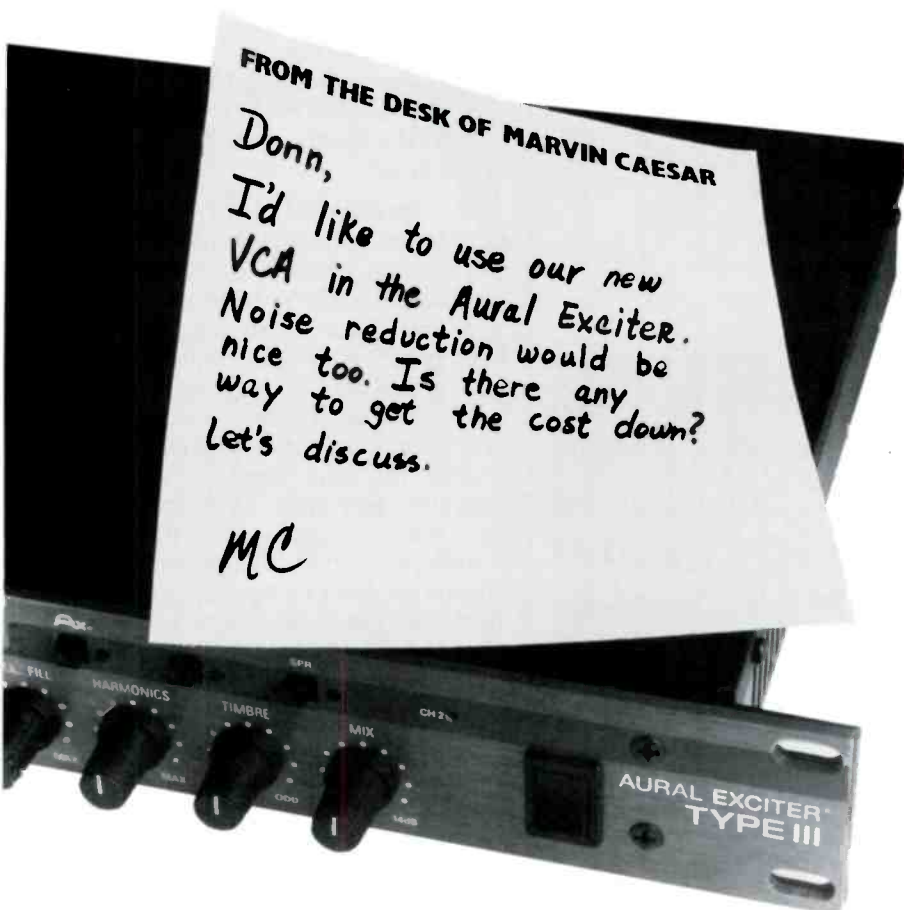 FROM THE DESK OF MARVIN CAESAR
Donn,
I'd like to use our new
VCA in the Aural Exciter.
Noise reduction would be
nice too. Is there any
way to get the cost down?
Let's discuss.
MC
SPR
FILL HARMONICS TIMBRE MIX CH 2
MAX MAX ODD 14dB
AURAL EXCITER
TYPE III